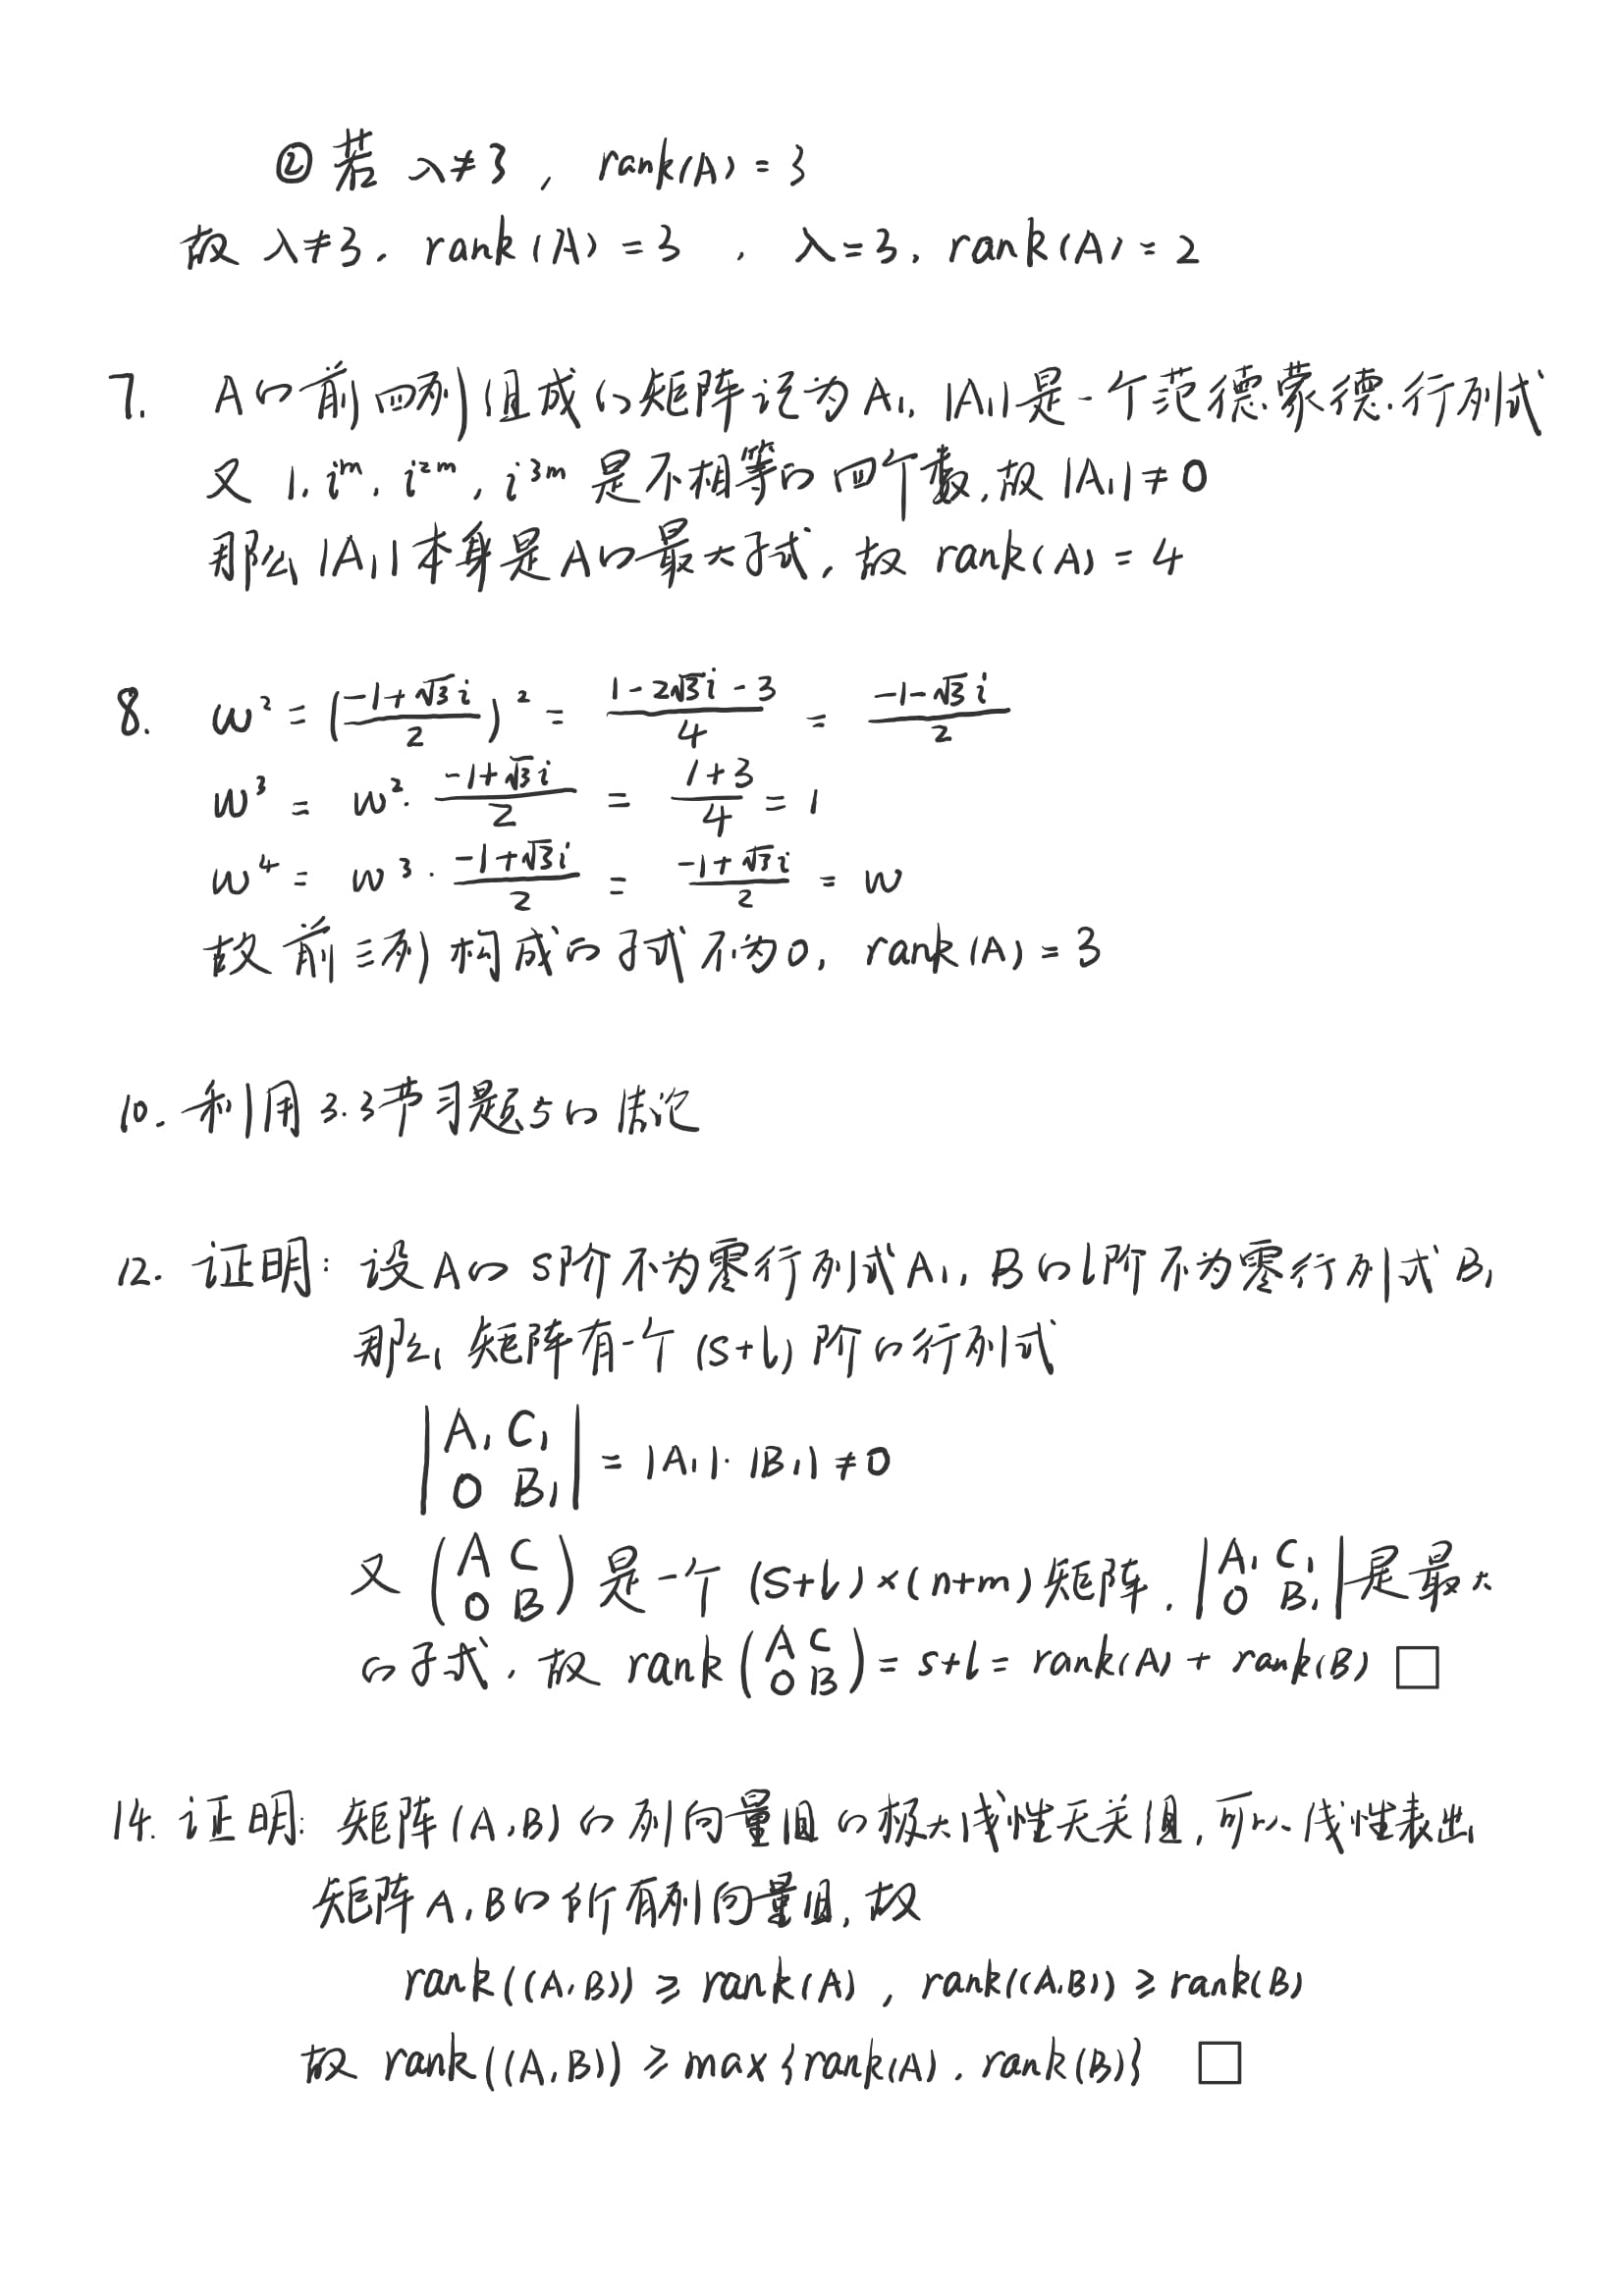 ② 若 λ≠3, rank(A) = 3
故 λ≠3, rank(A) = 3, λ=3, rank(A) = 2
7. A的前四列组成的矩阵记为A₁, |A₁|是一个范德蒙德行列式
又 1, iᵐ, i²ᵐ, i³ᵐ 是不相等的四个数,故 |A₁| ≠ 0
那么 |A₁| 本身是A的最大子式, 故 rank(A) = 4
8. w² = ((-1+√3i)/2)² = (1-2√3i-3)/4 = (-1-√3i)/2
w³ = w²·(-1+√3i)/2 = (1+3)/4 = 1
w⁴ = w³·(-1+√3i)/2 = (-1+√3i)/2 = w
故前三列构成的子式不为0, rank(A) = 3
10. 利用3.3节习题5的结论
12. 证明: 设A的s阶不为零行列式A₁, B的l阶不为零行列式B₁
那么矩阵有一个(s+l)阶的行列式
|A₁ C₁
0 B₁| = |A₁|·|B₁| ≠ 0
又 (A C
0 B) 是一个 (s+l)×(n+m)矩阵, |A₁ C₁
0 B₁| 是最大
的子式, 故 rank(A C
0 B) = s+l = rank(A) + rank(B) □
14. 证明: 矩阵(A,B)的列向量组的极大线性无关组,可以线性表出
矩阵A,B的所有列向量组,故
rank((A,B)) ≥ rank(A), rank((A,B)) ≥ rank(B)
故 rank((A,B)) ≥ max{rank(A), rank(B)} □